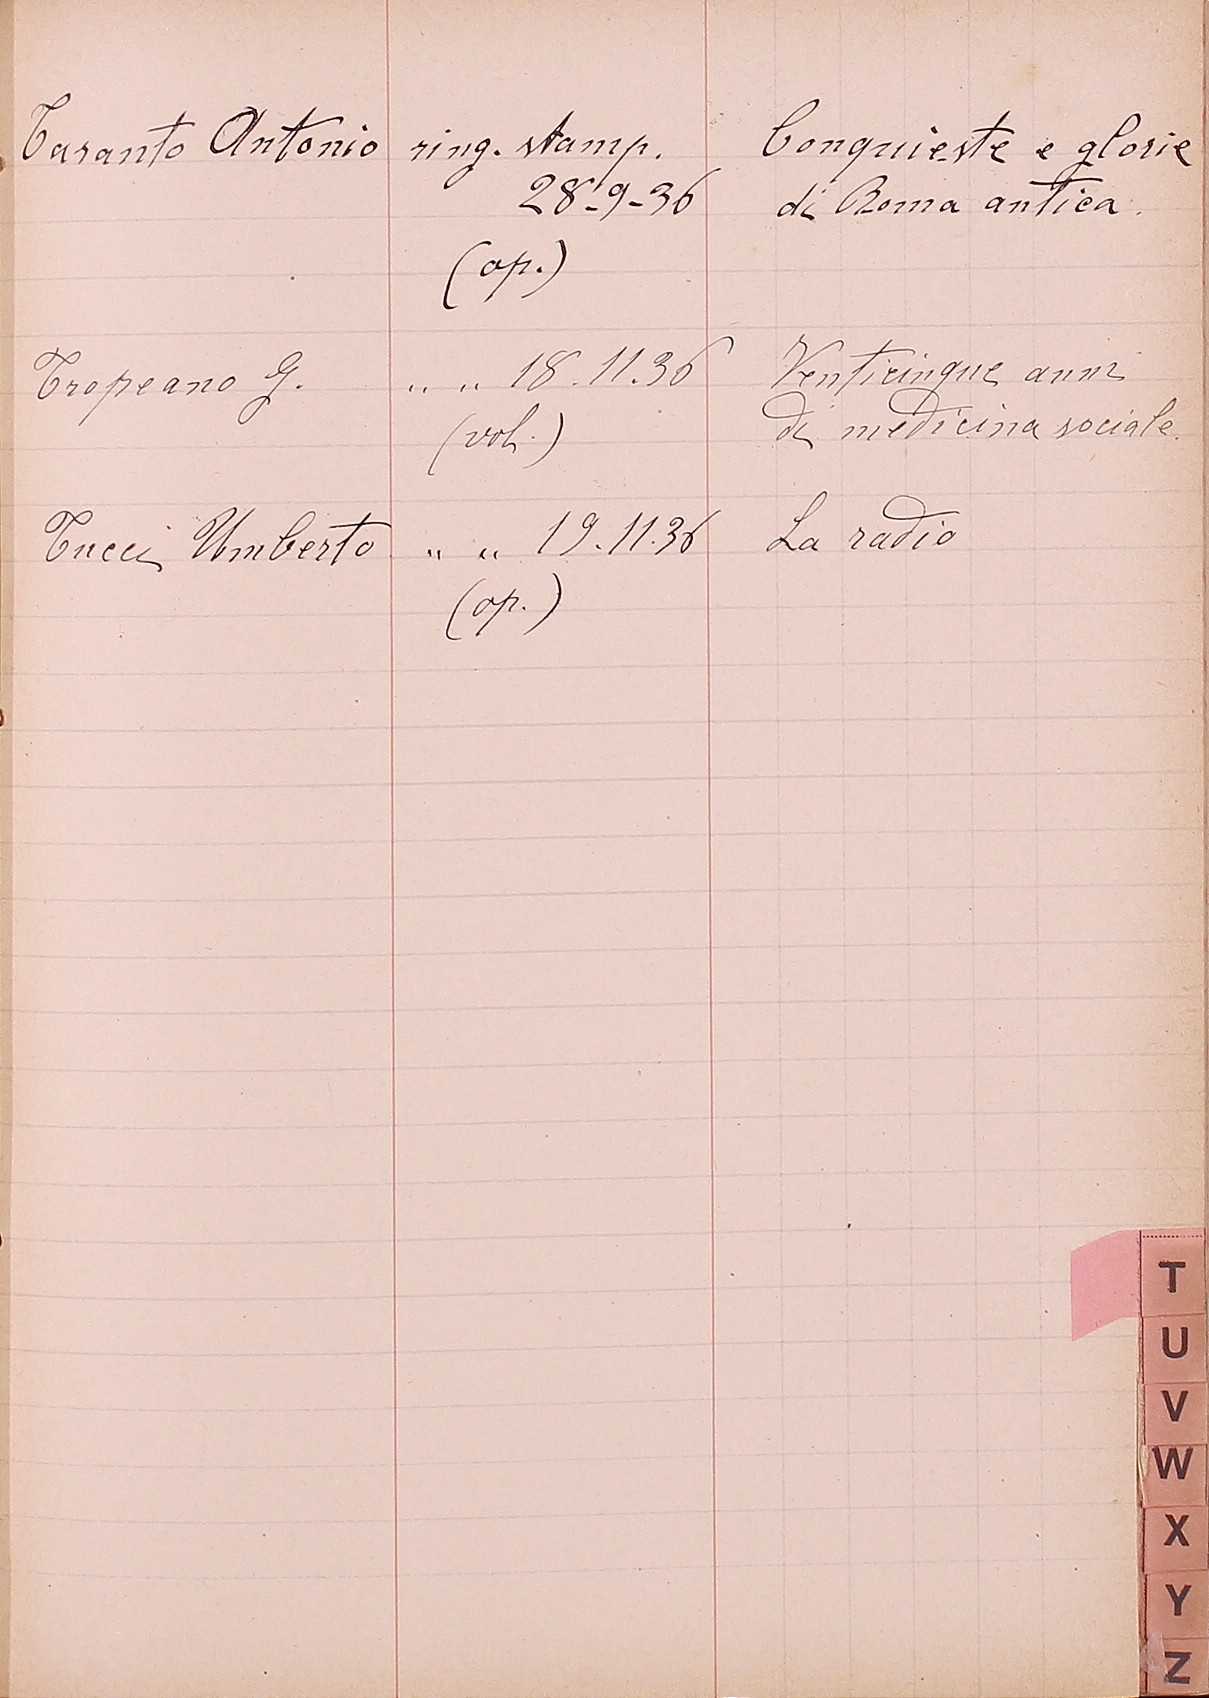 Taranto Antonio ring. stamp. Conquieste e glorie
28-9-36 di Roma antica.
(op.)
Tropeano G. " " 18.11.36 Venticinque anni
(vol.) di medicina sociale.
Tucci Umberto " " 19.11.36 La radio
(op.)
T
U
V
W
X
Y
Z